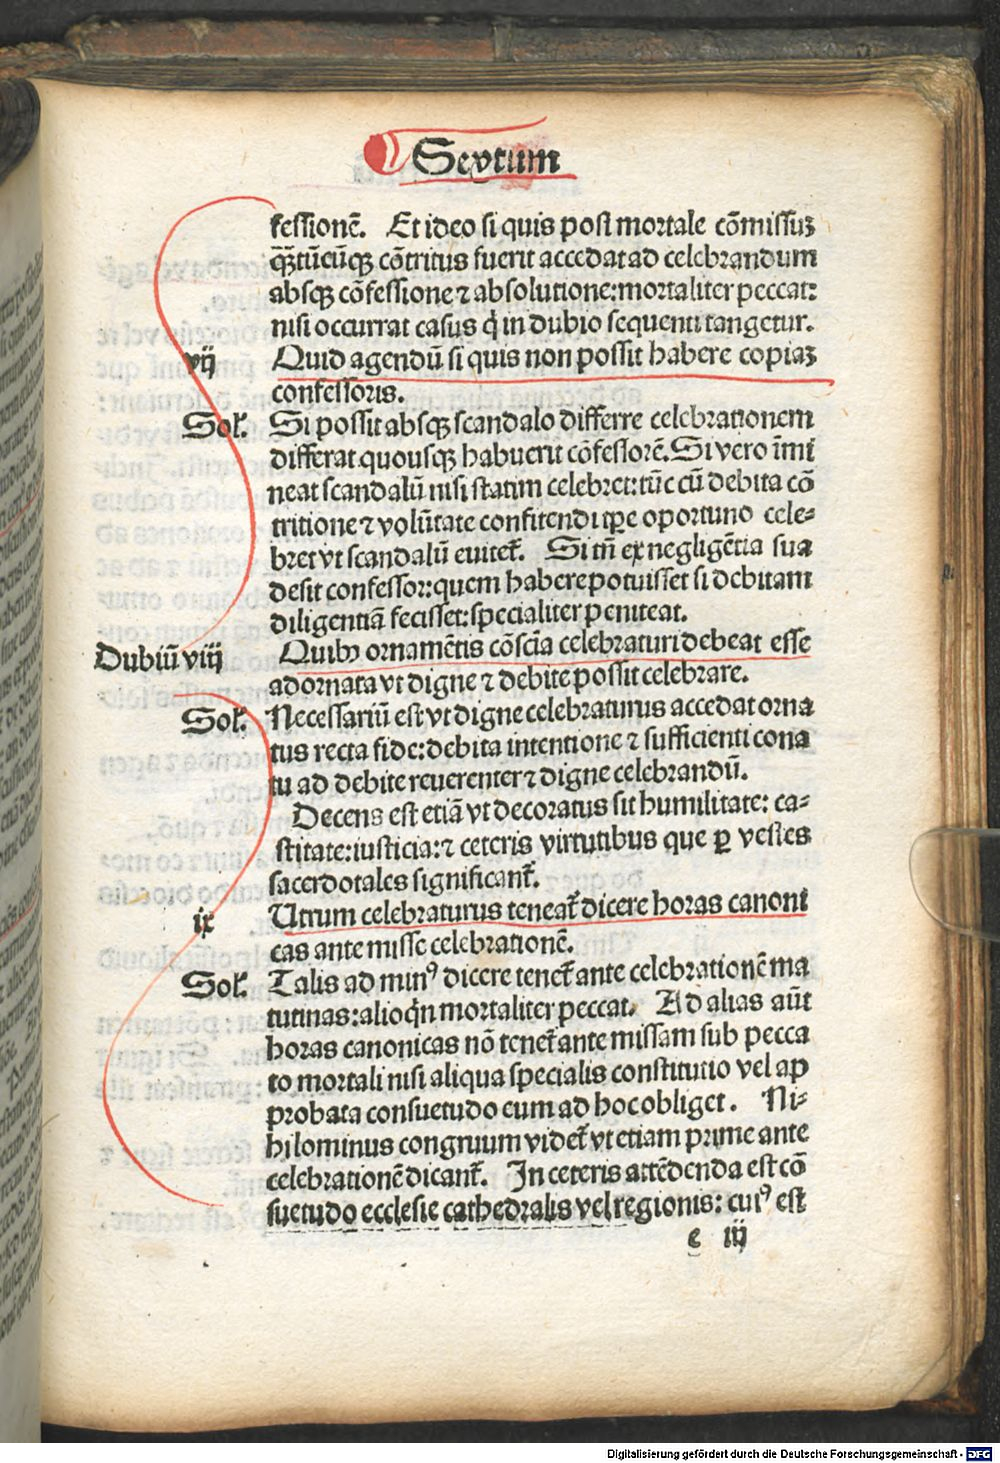 Sextum
fessionē. Et ideo si quis post mortale cōmissuꝫ
qͣꝫtūcūqꝫ cōtritus fuerit accedat ad celebrandum
absqꝫ cōfessione ⁊ absolutione: mortaliter peccat:
nisi occurrat casus q̇ in dubio sequenti tangetur.
vij Quid agendū si quis non possit habere copiaꝫ
confessoris.
Sol'. Si possit absqꝫ scandalo differre celebrationem
differat quousqꝫ habuerit cōfessorē. Si vero īmi
neat scandalū nisi statim celebret: tūc cū debita cō
tritione ⁊ volūtate confitendi tꝑe oportuno cele⸗
bret vt scandalū euitet᷑. Si tn̄ ex negligētia sua
desit confessor: quem habere potuisset si debitam
diligentiā fecisset: specialiter peniteat.
Dubiū viij Quibꝫ ornamētis cōsciā celebraturi debeat esse
adornata vt digne ⁊ debite possit celebrare.
Sol'. Necessariū est vt digne celebraturus accedat orna
tus recta fide: debita intentione ⁊ sufficienti cona
tu ad debite reuerenter ⁊ digne celebrandū.
Decens est etiā vt decoratus sit humilitate: ca⸗
stitate: iusticia: ⁊ ceteris virtutibus que ꝑ vestes
sacerdotales significant᷑.
ix Utrum celebraturus teneat᷑ dicere horas canoni
cas ante misse celebrationē.
Sol'. Talis ad minꝰ dicere tenet᷑ ante celebrationē ma
tutinas: alioqͥn mortaliter peccat. Ad alias aūt
horas canonicas nō tenet᷑ ante missam sub pecca
to mortali nisi aliqua specialis constitutio vel ap
probata consuetudo eum ad hoc obliget. Ni⸗
hilominus congruum videt᷑ vt etiam prime ante
celebrationē dicant᷑. In ceteris attēdenda est cō
suetudo ecclesie cathedralis vel regionis: cuiꝰ est
e iij
Digitalisierung gefördert durch die Deutsche Forschungsgemeinschaft - DFG